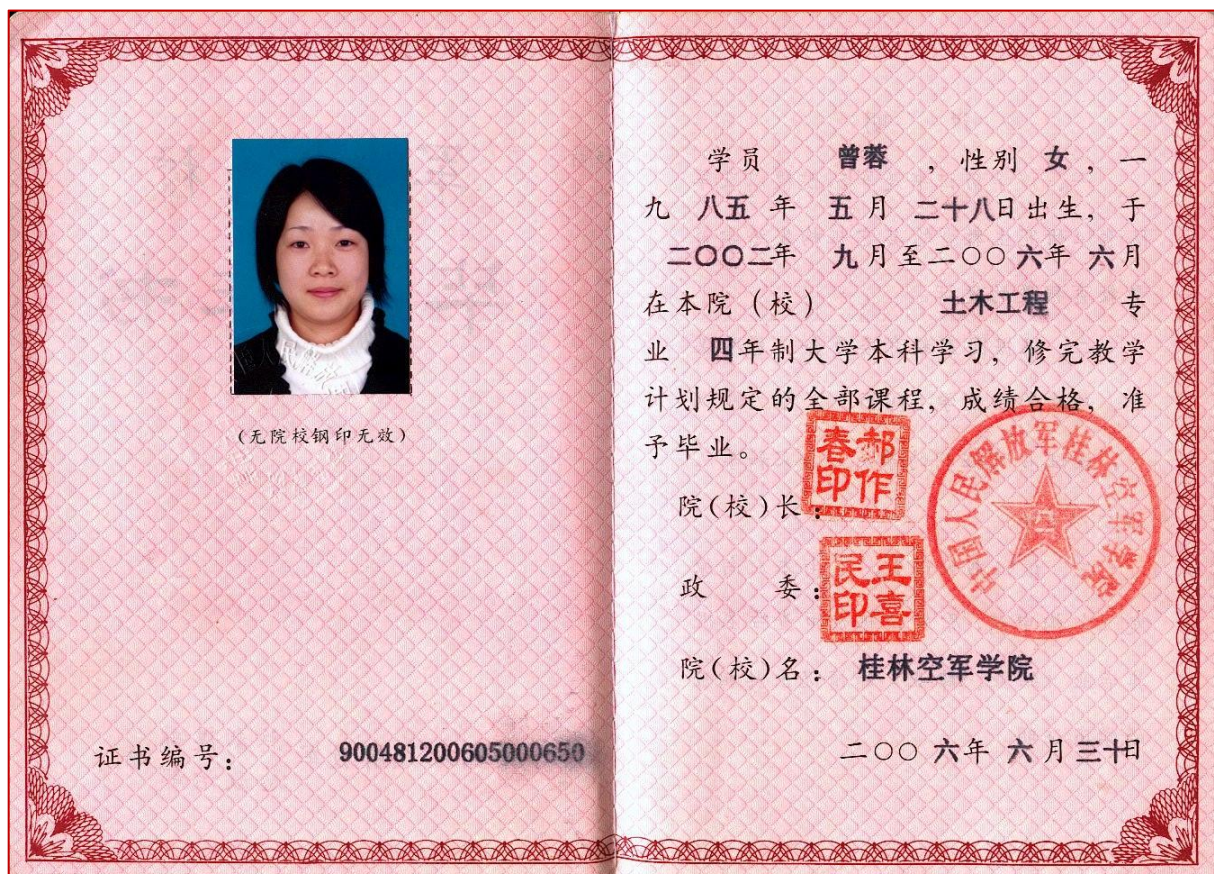 (无院校钢印无效)
证书编号: 900481200605000650
学员 曾蓉 , 性别 女 , 一
九 八五 年 五月 二十八日出生, 于
二〇〇二年 九月至二〇〇六年 六月
在本院 (校) 土木工程 专
业 四年制大学本科学习, 修完教学
计划规定的全部课程, 成绩合格, 准
予毕业。
院(校)长:
郝作
春印
政 委:
王喜
民印
中国人民解放军桂林空军学院
院(校)名: 桂林空军学院
二〇〇六年 六月三十日